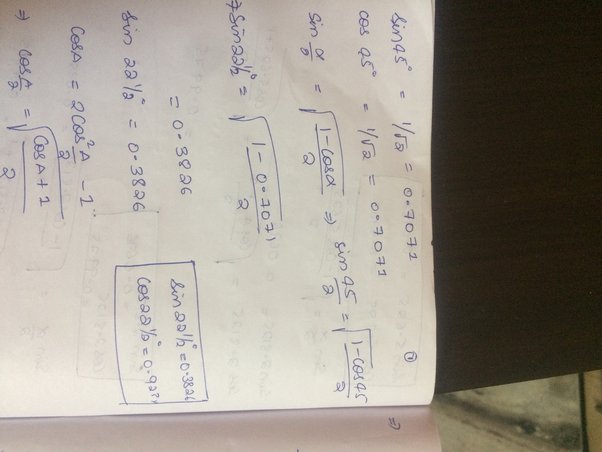 sin 45° = 1/√2 = 0.7071
cos 45° = 1/√2 = 0.7071
sin α/2 = √(1-cosα)/2 ⇒ sin 45/2 = √(1-cos45)/2
7 sin 22½° = √(1-0.7071)/2
= 0.3826
sin 22½° = 0.3826
cosA = 2cos²A/2 - 1
⇒ cos A/2 = √(cosA+1)/2
sin 22½° = 0.3826
cos 22½° =
⇒